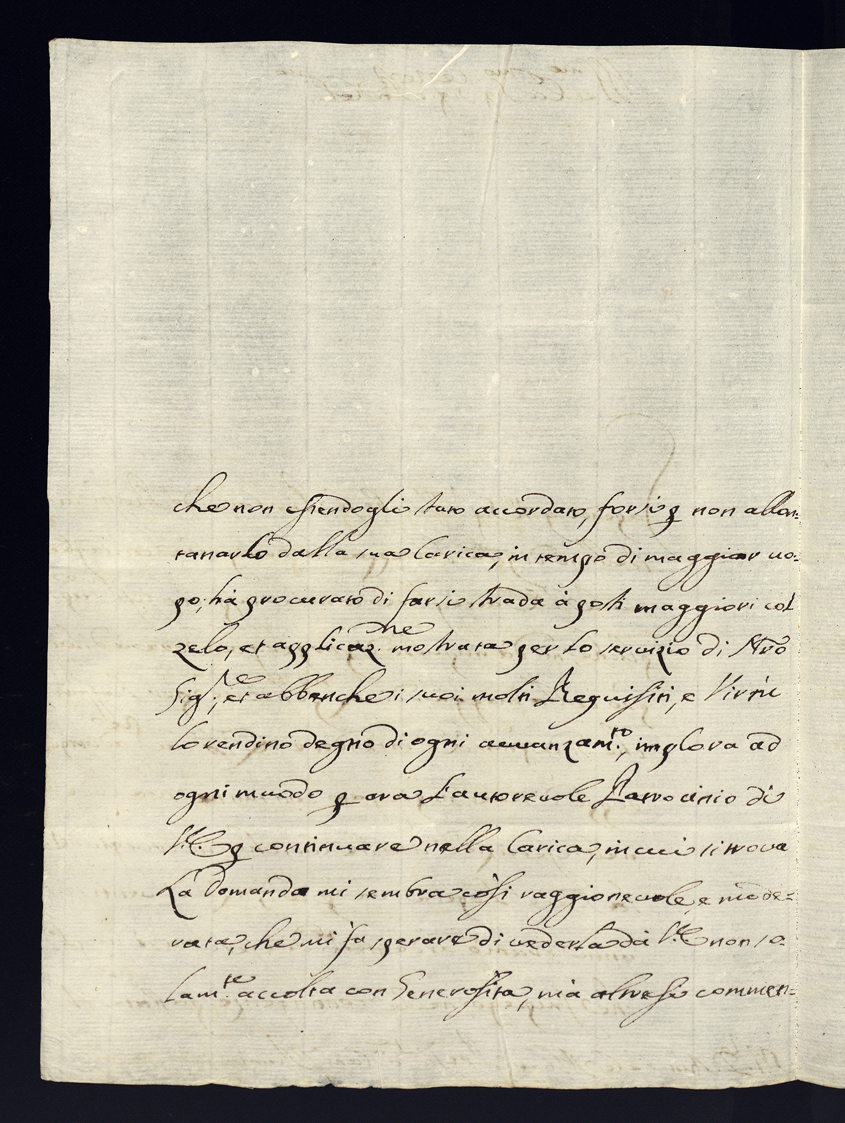 che non essendogli stato accordato, forsi p non allon=
tanarlo dalla sua Carica, in tempo di maggior uo=
po, hà procurato di farsi strada à posti maggiori col
zelo, et applicaz.ne mostrata per lo servizio di Nr̃o
Sig.re, et abbenche i suoi molti Requisiti, e Virtù
lo rendino degno di ogni avvanzam.to, implora ad
ogni muodo p ora l'autorevole Patrocinio di
V.E. p continuare nella Carica, in cui si trova
La domanda mi sembra così raggionevole, e mode=
rata, che mi fa sperare di vederla da V.E. non so
lam.te accolta con Generosità, mà altresi commen=